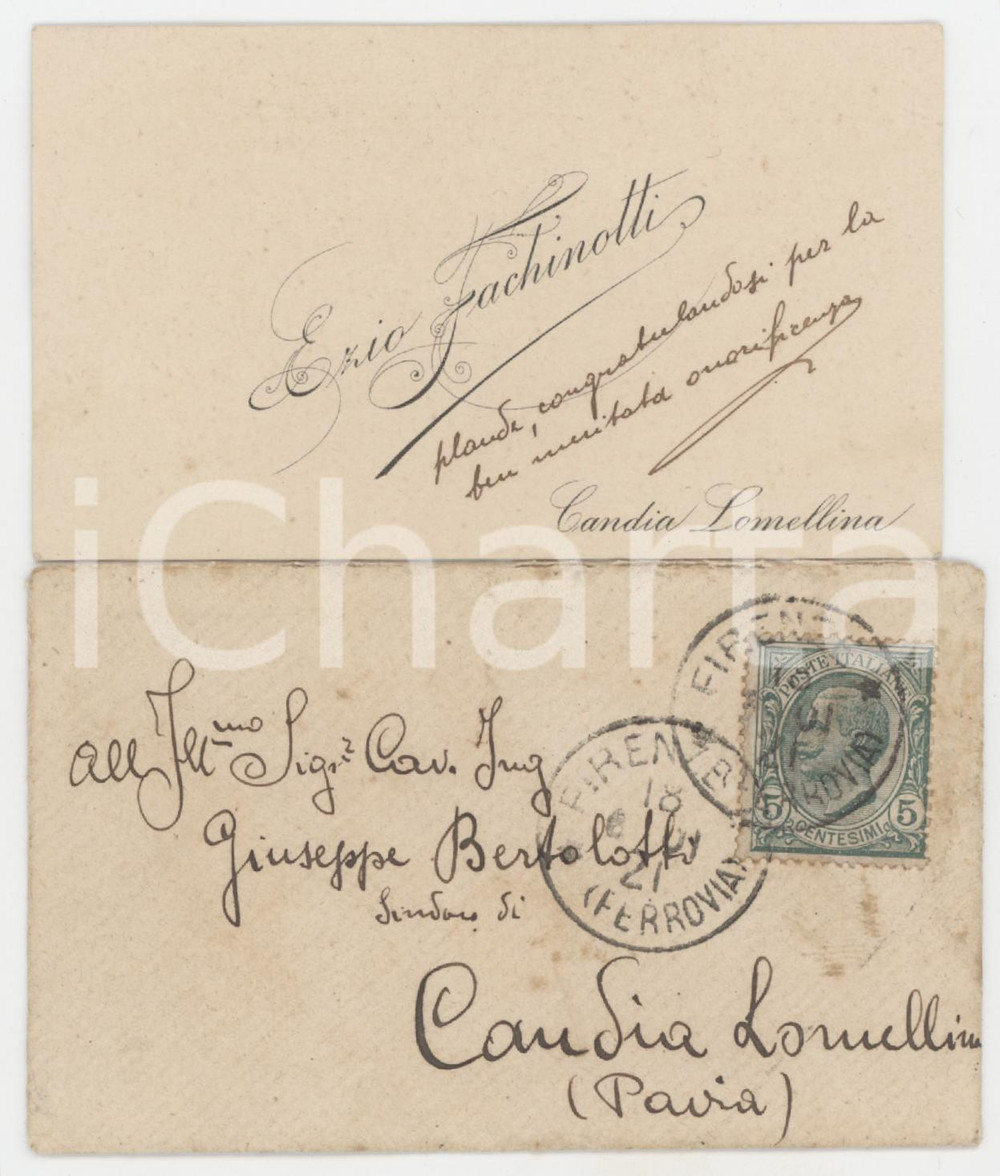 Ezio Fachinotti
plaude, congratulandosi per la
ben meritata onorificenza
Candia Lomellina
iCharta
All Ill.mo Sigr. Cav. Ing
Giuseppe Bertolotti
Sindaco di
Candia Lomellina
(Pavia)
FIRENZE
(FERROVIA)
FIRENZE
18
21
(FERROVIA)
POSTE ITALIANE
5 5
CENTESIMI